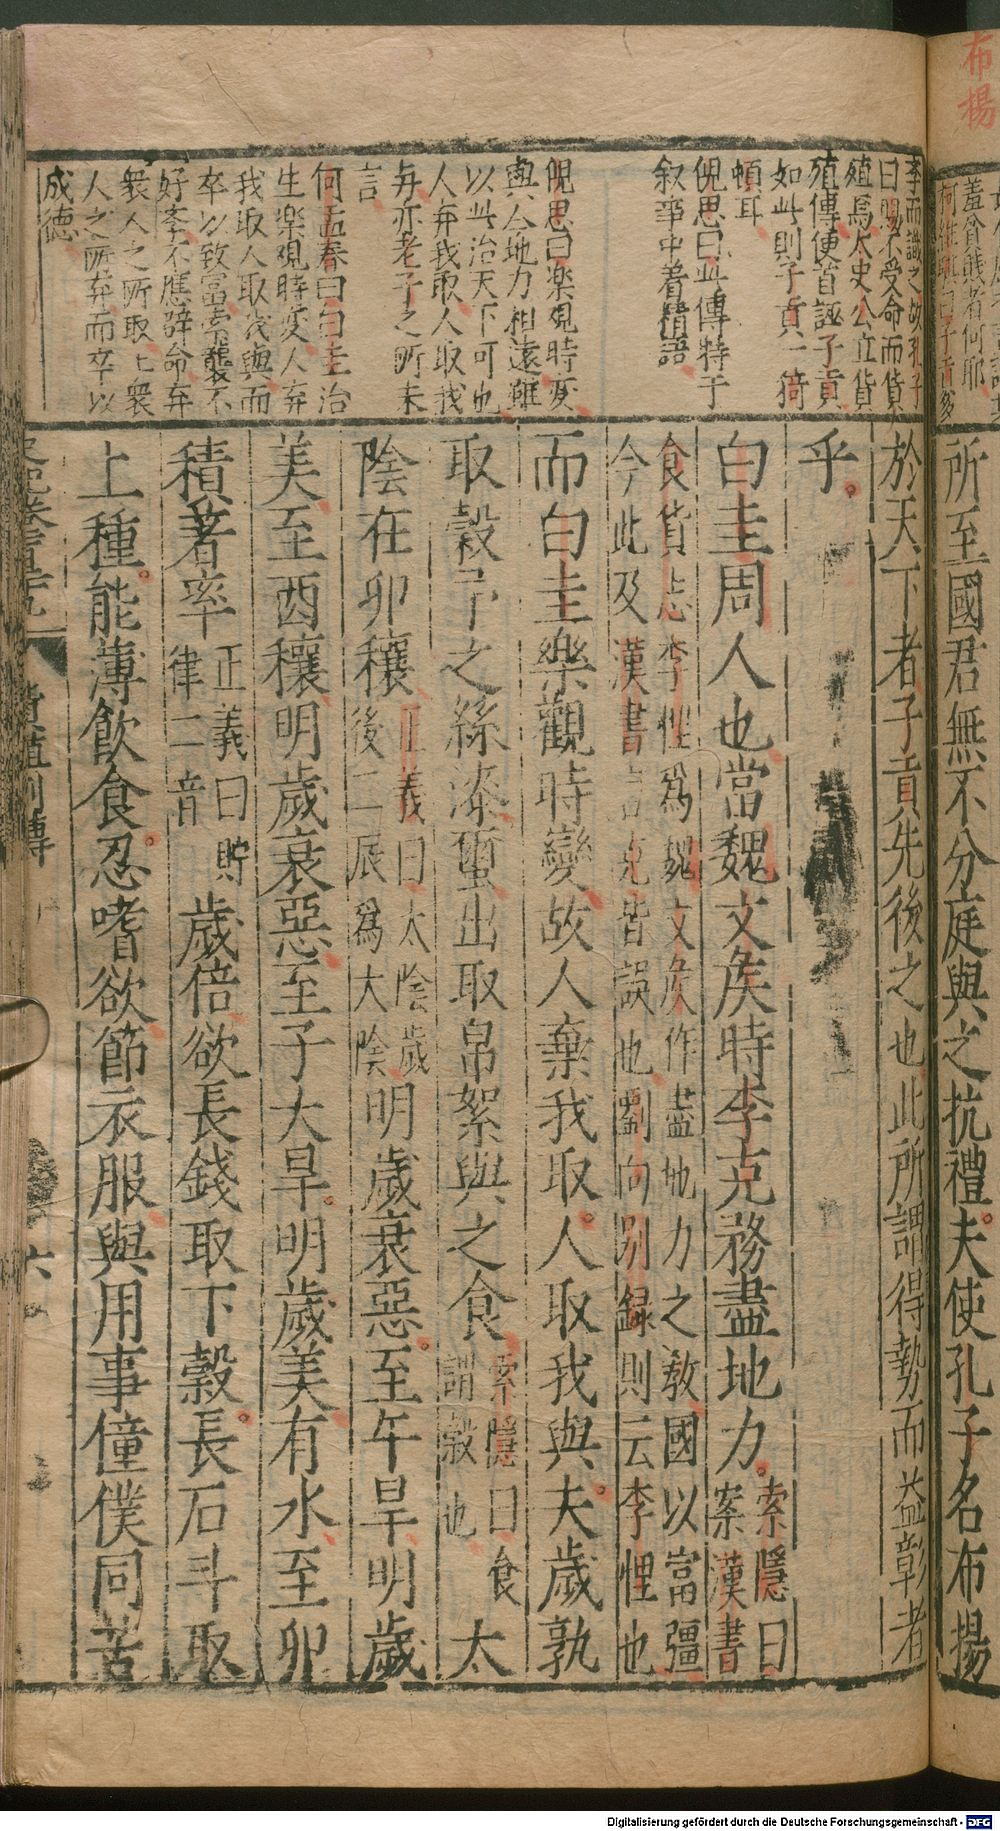 布揚
所至國君無不分庭與之抗禮夫使孔子名布揚
於天下者子貢先後之也此所謂得勢而益彰者
乎
白圭周人也當魏文侯時李克務盡地力索隱曰案漢書
食貨志李悝爲魏文侯作盡地力之敎國以富彊
今此及漢書言克皆誤也劉向別録則云李悝也
而白圭樂觀時變故人棄我取人取我與夫歲孰
取穀予之絲漆蠒出取帛絮與之食索隱曰食謂穀也太
陰在卯穰正義曰太陰歲後二辰爲大陰明歲衰惡至午旱明歲
美至酉穰明歲衰惡至子大旱明歲美有水至卯
積著率正義曰貯律二音歲倍欲長錢取下穀長石斗取
上種能薄飲食忍嗜欲節衣服與用事僮僕同苦
曰賜不受命而貨
殖焉太史公立貨
殖傳便首誣子貢
如此則子貢一猗
頓耳
倪思曰此傳特于
叙事中着精語
倪思曰樂觀時変
與尽地力相遠雖
以此治天下可也
人弃我取人取我
与亦老子之所未
言
何孟春曰白圭治
生樂觀時変人弃
我取人取我與而
卒以致富嘗襲不
好奢不應辟命弃
衆人之所取上衆
人之所弃而卒以
成德
貨殖列傳
六
Digitalisierung gefördert durch die Deutsche Forschungsgemeinschaft - DFG